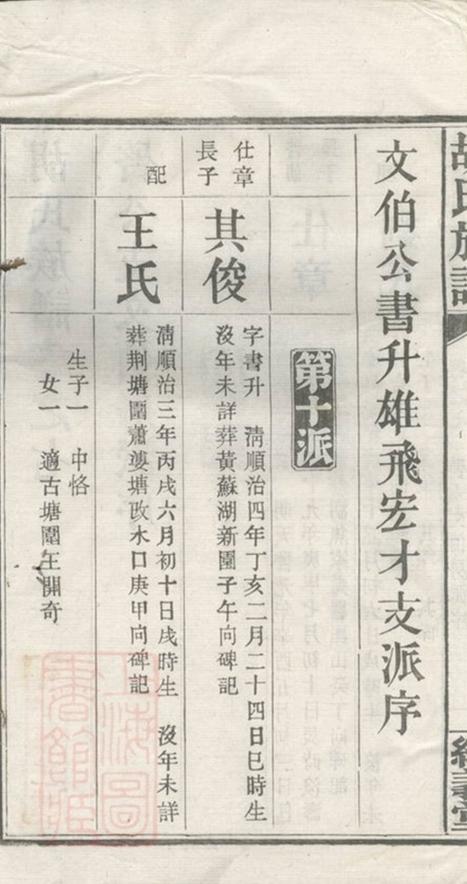 胡氏族譜
文伯公書升雄飛宏才支派序
第十派
仕章
長子
其俊
字書升 清順治四年丁亥二月二十四日巳時生
沒年未詳葬黃蘇湖新圍子午向碑記
配
王氏
清順治三年丙戌六月初十日戌時生 沒年未詳
葬荆塘圍蕭婆塘改水口庚甲向碑記
生子一 中恪
女一 適古塘圍王開奇